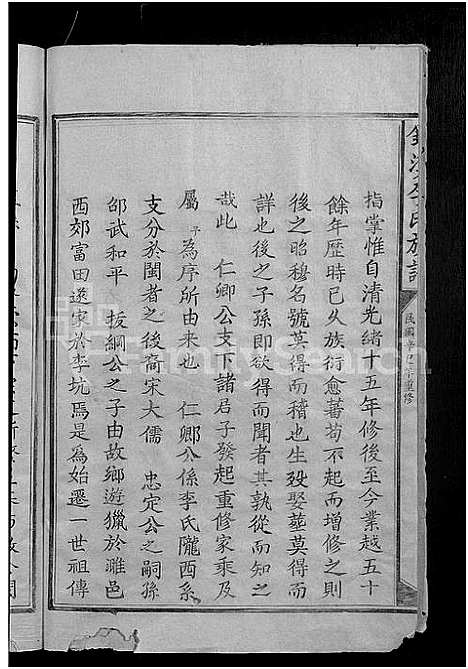 李氏族譜
民國辛巳年重修
指掌惟自清光緒十五年修後至今業越五十
餘年歷時已久族衍愈蕃苟不起而增修之則
後之昭穆名號莫得而稽也生殁娶葬莫得而
詳也後之子孫即欲得而聞者其孰從而知之
哉此 仁卿公支下諸君子發起重修家乘及
屬予為序所由来也 仁卿公係李氏隴西系
支分於閩者之後裔宋大儒 忠定公之嗣孫
邵武和平 拔綱公之子由故鄉遊獵於雎邑
西郊富田遂家於李坑焉是為始遷一世祖傳
FamilySearch